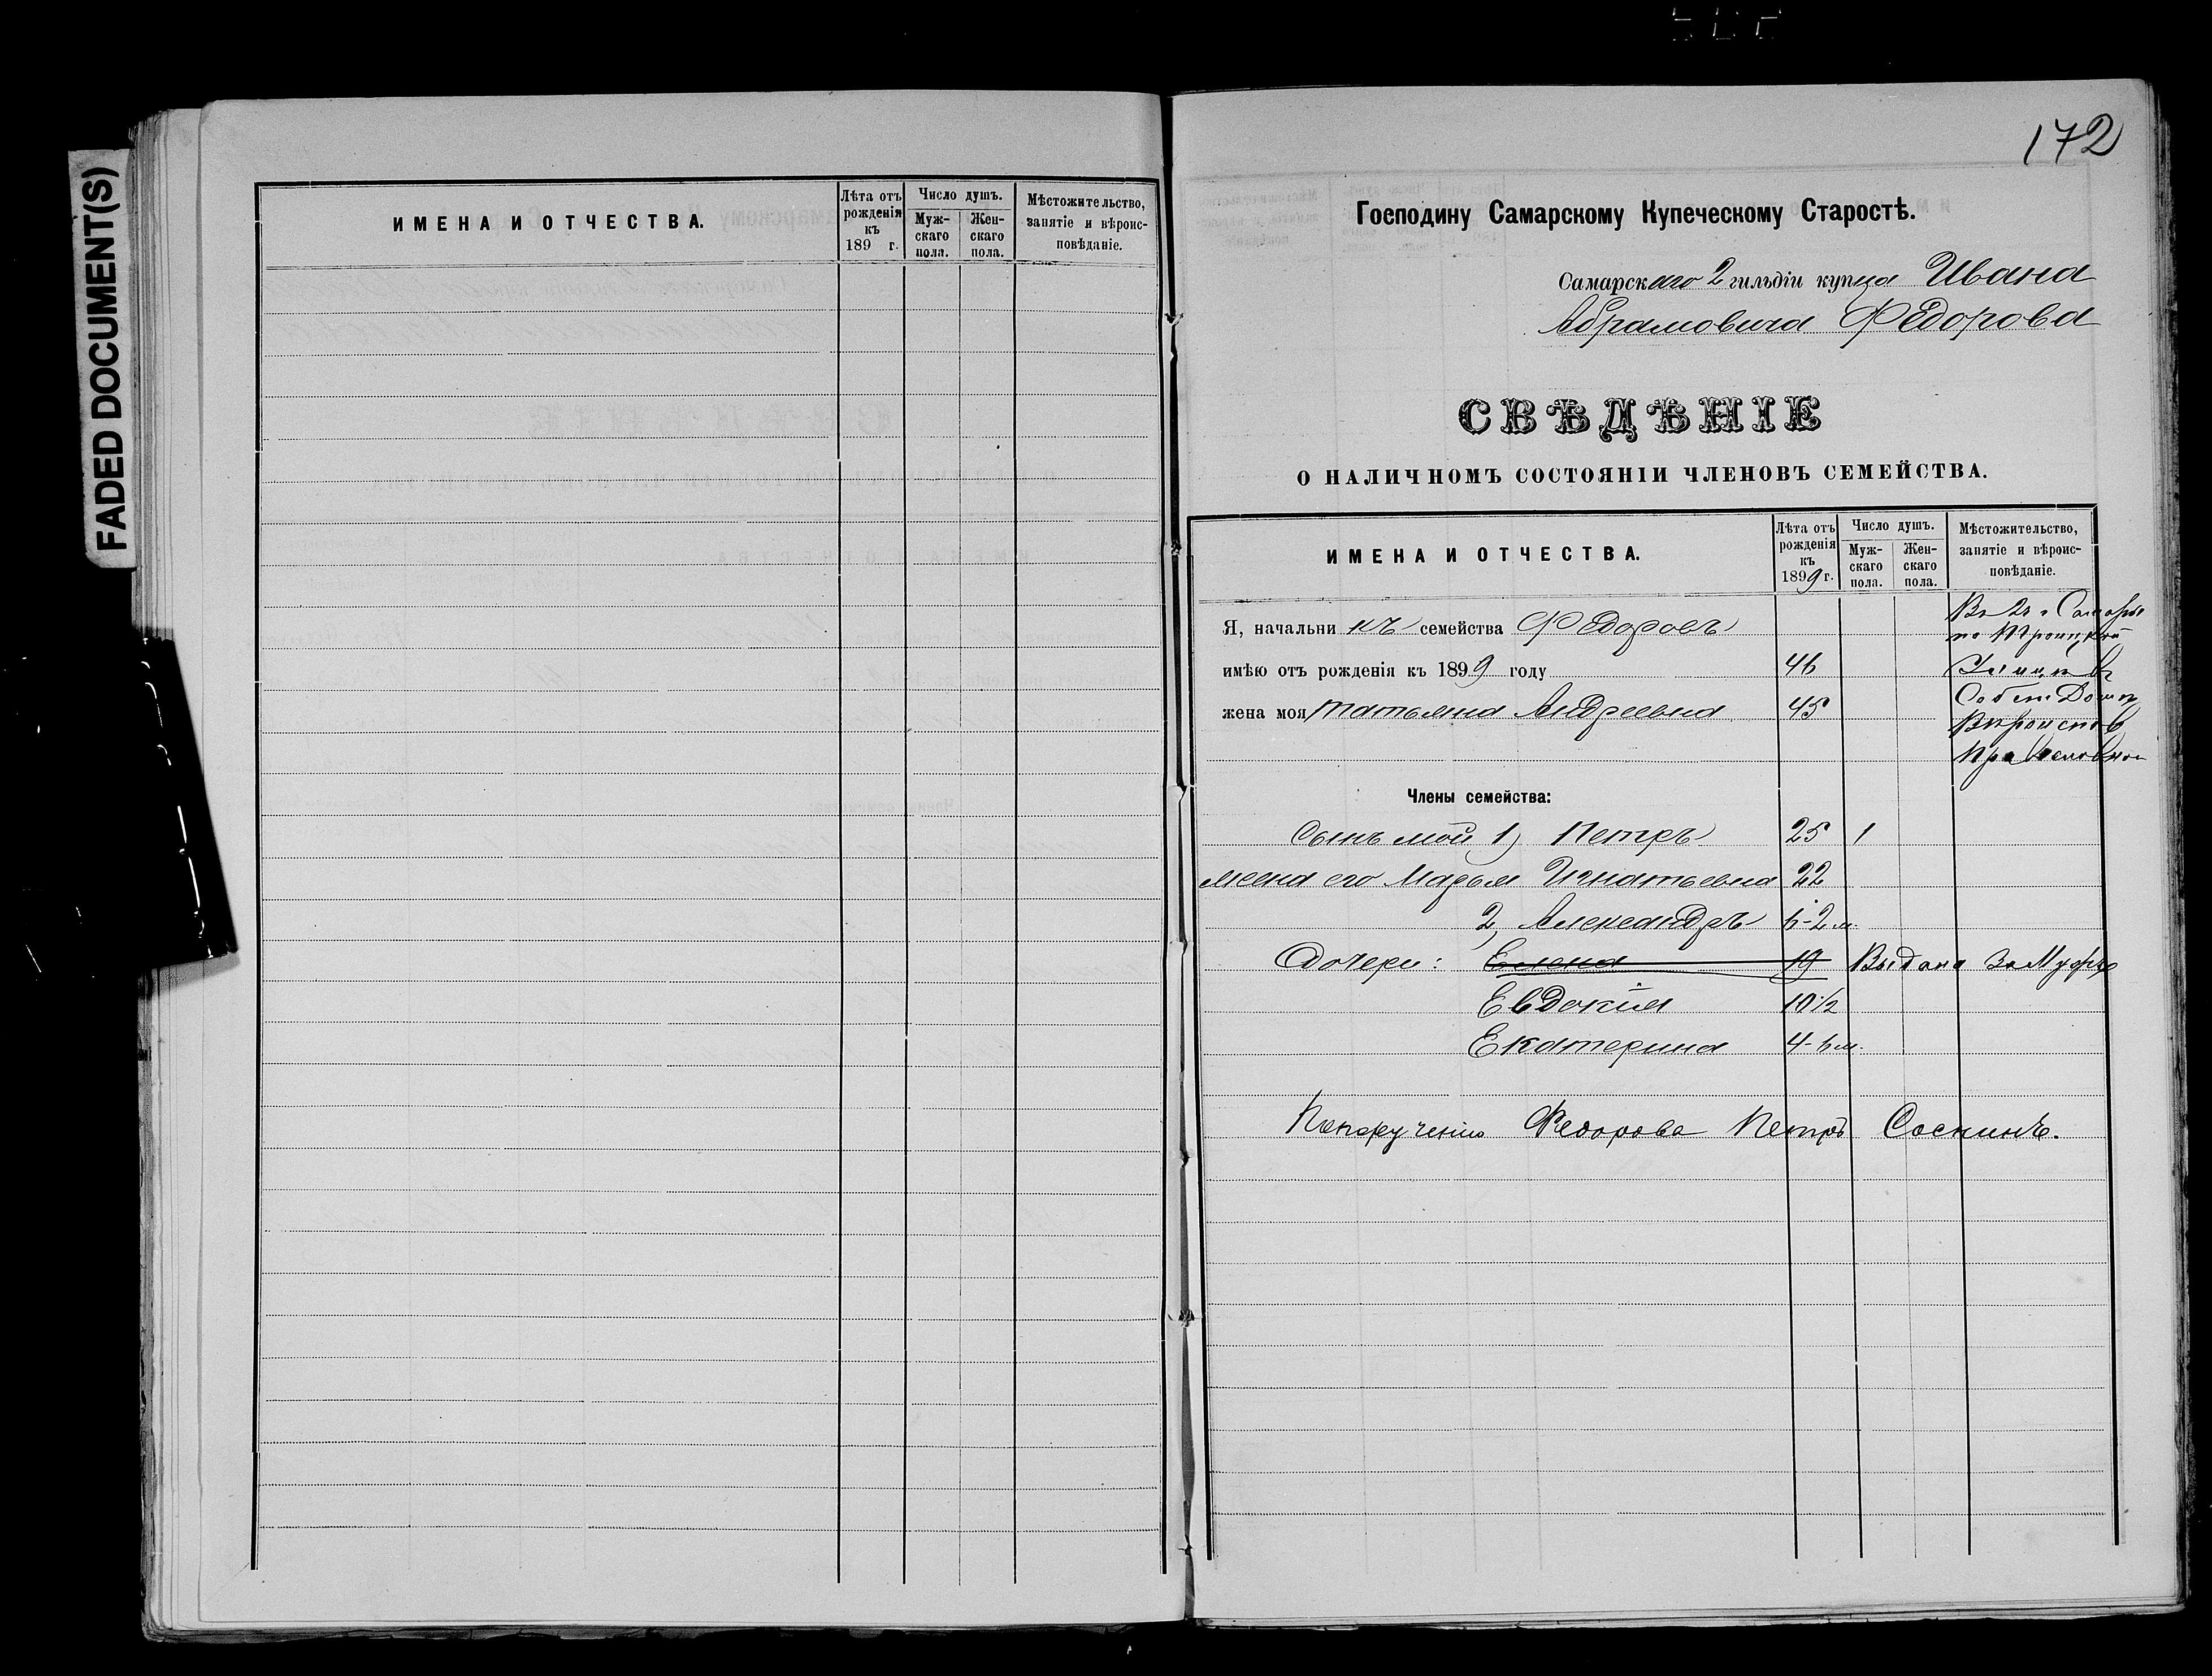 FADED DOCUMENT(S)
ИМЕНА И ОТЧЕСТВА.
Лѣта отъ рожденія къ 189 г.
Число душъ.
Мужскаго пола.
Женскаго пола.
Мѣстожительство, занятіе и вѣроисповѣданіе.
172
Господину Самарскому Купеческому Старостѣ.
Самарскаго 2 гильдіи купца Ивана
Абрамовича Федорова
СВѢДѢНІЕ
О НАЛИЧНОМЪ СОСТОЯНІИ ЧЛЕНОВЪ СЕМЕЙСТВА.
ИМЕНА И ОТЧЕСТВА.
Лѣта отъ рожденія къ 1899 г.
Число душъ.
Мужскаго пола.
Женскаго пола.
Мѣстожительство, занятіе и вѣроисповѣданіе.
Я, начальникъ семейства Федоровъ
имѣю отъ рожденія къ 1899 году 46
жена моя Татьяна Андреевна 45
Самаре
по Троицкой
Улице въ
Собст Доме
Вероиспов
Православного
Члены семейства:
Сынъ мой 1) Петръ 25 1
жена его Марья Игнатьевна 22
2, Александръ 6-2 м.
Дочери: Елена 19 Выдана Замужъ
Евдокія 10 1/2
Екатерина 4-6 м.
По поручению Федорова Петръ Соснинъ.